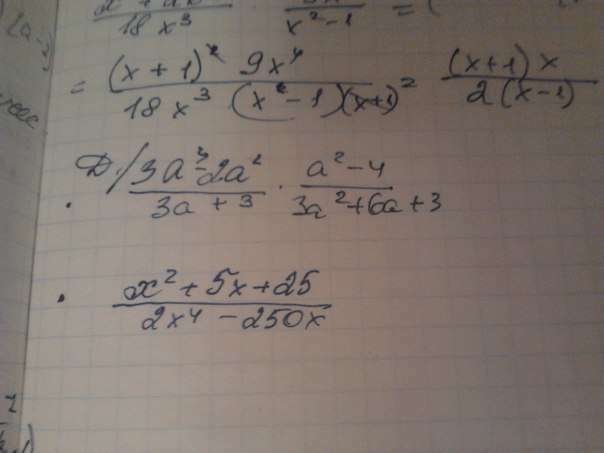 18x³ x²-1 = (
= (x+1)² 9x⁴ / 18x³ (x²-1)(x+1)² (x+1)x / 2(x-1)
Д./ 3a³-2a² / 3a+3 · a²-4 / 3a²+6a+3
x²+5x+25 / 2x⁴-250x